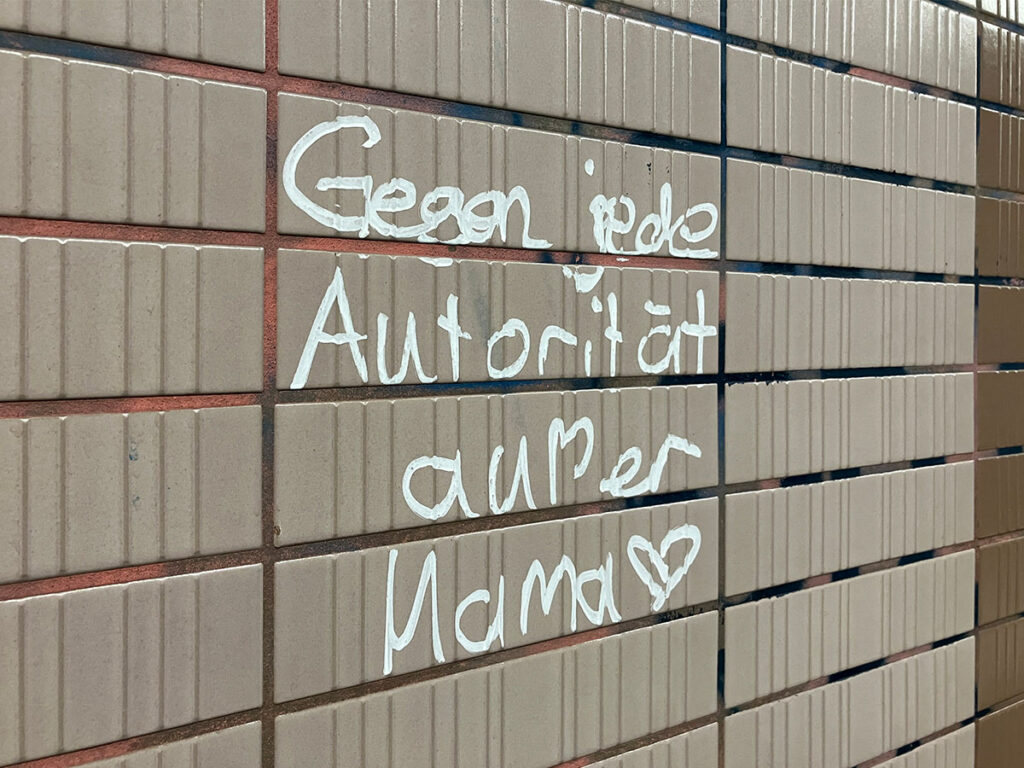 Gegen jede
Autorität
außer
Mama ♡